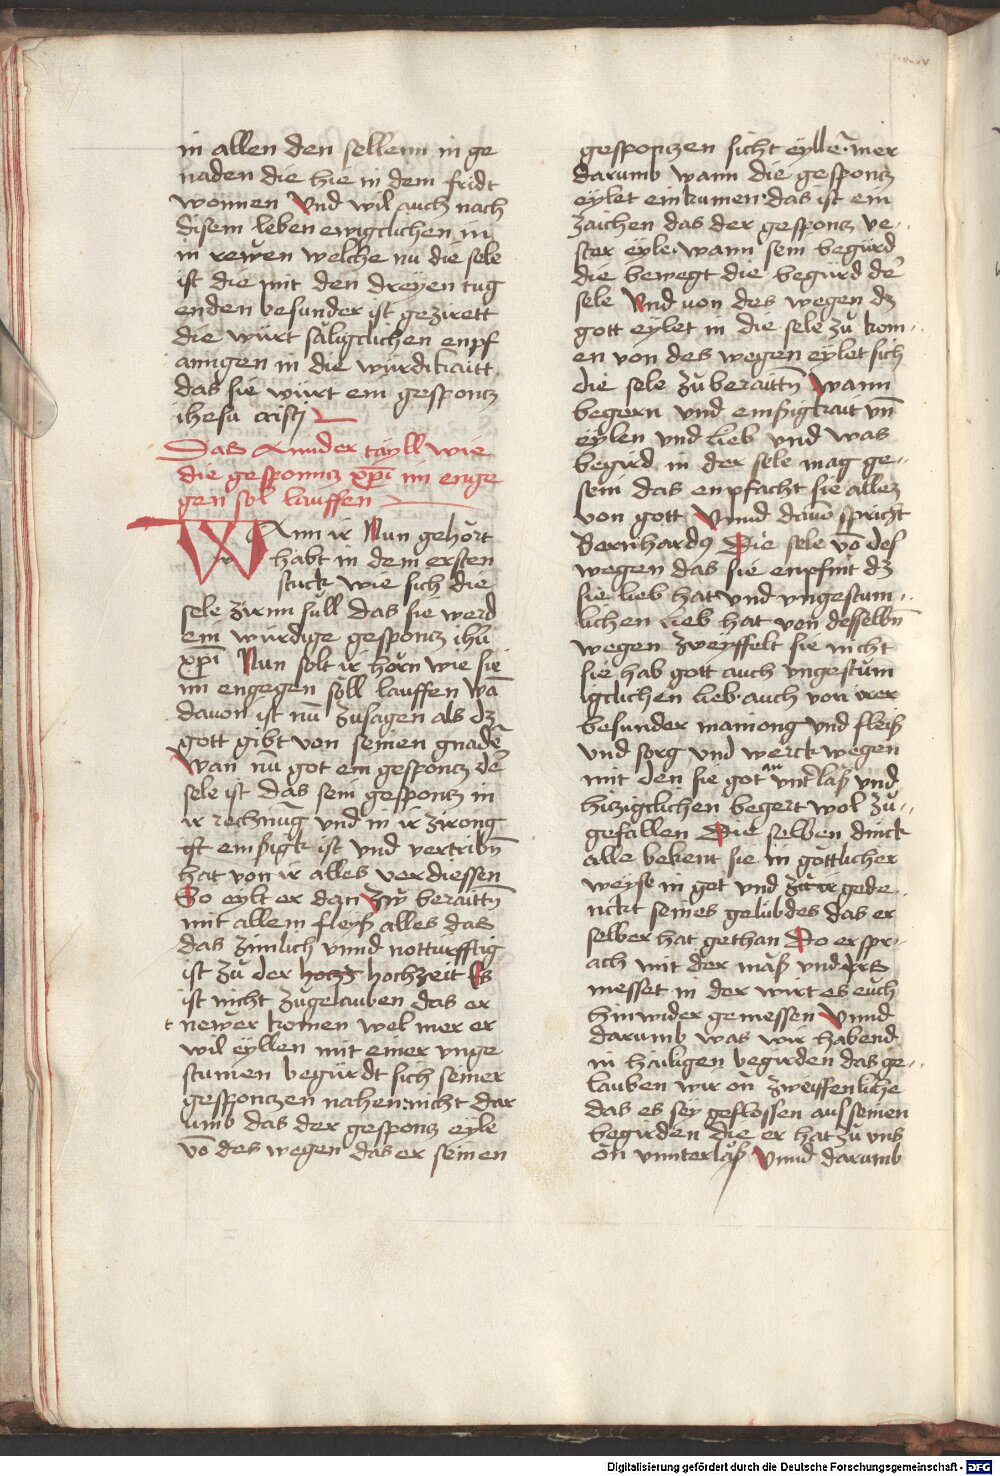 in allen den sellenn in ge
naden die hie in dem fridt
wonnen Vnd wil auch nach
disem leben ewigclichen in
in rewen welche nu die sele
ist die mit den dreyen tug
enden besunder ist gezirett
die würt säligclichen enpf
anngen in die würdikaitt
das sie würt ein gesponcz
ihesu cristi
Das Annder tayll wie
die gesponncz xp̄i im enge
gen sol lauffen
WAnn ir Nun gehört
habt in dem ersten
stuck wie sich die
sele ziren sull das sie werd
ein würdige gesponcz ihū
xp̄i Nun solt ir hörn wie sie
im engegen soll lauffen wā
dauon ist nū zusagen als dz
gott gibt von seinen gnadē
Wan nū got ein gesponcz der
sele ist das sein gesponcz in
ir rechnūg vnd in ir zirong
ist emsigk ist vnd vertribn̄
hat von ir alles verdiessen
So eylt er dan zw beraittn̄
mit allem fleyß alles das
das zimlich vnnd notturfftig
ist zu der hochzeit Es
ist nicht zugelauben das er
newer komen wel mer er
wil eyllen mit einer vnge
stumen begürdt sich seiner
gesponczen nahen nicht dar
umb das der gesponcz eyle
vō des wegen das er seinen
gesponczen sicht eyllē mer
darumb wann die gesponcz
eylet ein kumen das ist ein
zaichen das der gesponcz ve
ster eyle wann sein begürd
die bewegt die begürd der
sele Vnd von des wegen dz
gott eylet in die sele zu kom
en von des wegen eylet sich
die sele zu beraittn̄ Wann
begern vnd emsigkait vn̄
eylen vnd lieb vnd was
begird in der sele mag ge
sein das enpfacht sie allez
von gott Vnnd dauō spricht
Bernhardus Die sele vō des
wegen das sie enpfint dz
sie lieb hat vnd vngestum
lichen lieb hat von desselbn̄
wegen zweyffelt sie nicht
sie hab gott auch vngestüm
igclichen lieb auch von irer
besunder mainong vnd fleiß
vnd sorg vnd werck wegen
mit den sie got an vnterlaß vnd
hiczigclichen begert wol zu
gefallen Die selben dinck
alle bekent sie in göttlicher
weyse in got vnd gede
nckt seines gelübdes das er
selber hat gethan Do er spr
ach mit der maß vnd irs
messet in der wirt es euch
hin wider gemessen Vnnd
darumb was wir habend
in hailigen begirden das ge
lauben wir on zweiffenliche
das es sey geflossen aus seinen
begirden die er hat zu vns
on vnnterlaß Vnnd darumb
Digitalisierung gefördert durch die Deutsche Forschungsgemeinschaft - DFG